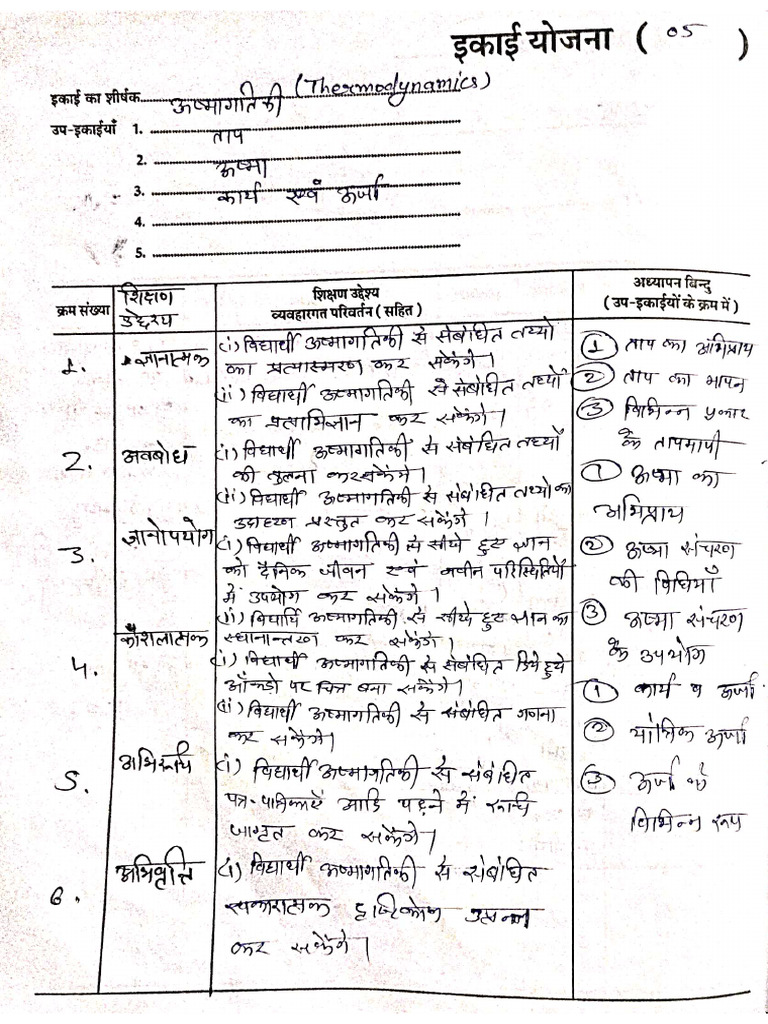 इकाई योजना ( 05 )
इकाई का शीर्षक ऊष्मागतिकी (Thermodynamics)
उप-इकाईयाँ 1. ताप
2. ऊष्मा
3. कार्य एवं ऊर्जा
4.
5.
क्रम संख्या
शिक्षण
उद्देश्य
शिक्षण उद्देश्य
व्यवहारगत परिवर्तन ( सहित )
अध्यापन बिन्दु
( उप-इकाईयों के क्रम में )
1. ज्ञानात्मक
(i) विद्यार्थी ऊष्मागतिकी से संबंधित तथ्यो
का प्रत्यास्मरण कर सकेंगे।
(ii) विद्यार्थी ऊष्मागतिकी से संबंधित तथ्यों
का प्रत्याभिज्ञान कर सकेंगे।
2. अवबोध
(i) विद्यार्थी ऊष्मागतिकी से संबंधित तथ्यों
की तुलना कर सकेंगे।
(ii) विद्यार्थी ऊष्मागतिकी से संबंधित तथ्यो का
उदाहरण प्रस्तुत कर सकेंगे ।
3. ज्ञानोपयोग
(i) विद्यार्थी ऊष्मागतिकी से सीखे हुए ज्ञान
को दैनिक जीवन एवं नवीन परिस्थितियों
में उपयोग कर सकेंगे ।
(ii) विद्यार्थि ऊष्मागतिकी से सीखे हुए ज्ञान का
स्थानान्तरण कर सकेंगे।
4. कौशलात्मक
(i) विद्यार्थी ऊष्मागतिकी से संबंधित दिये हुये
आँकडो पर चित्र बना सकेंगे।
(ii) विद्यार्थी ऊष्मागतिकी से संबंधित गणना
कर सकेंगे।
5. अभिरूचि
(i) विद्यार्थी ऊष्मागतिकी से संबंधित
पत्र-पत्रिकाएँ आदि पढ़ने में रूचि
जागृत कर सकेंगे।
6. अभिवृत्ति
(i) विद्यार्थी ऊष्मागतिकी से संबंधित
सकारात्मक दृष्टिकोण उत्पन्न
कर सकेंगे।
① ताप का अभिप्राय
② ताप का मापन
③ विभिन्न प्रकार
के तापमापी
① ऊष्मा का
अभिप्राय
② ऊष्मा संचरण
की विधियाँ
③ ऊष्मा संचरण
के उपयोग
① कार्य व ऊर्जा
② यांत्रिक ऊर्जा
③ ऊर्जा के
विभिन्न रूप